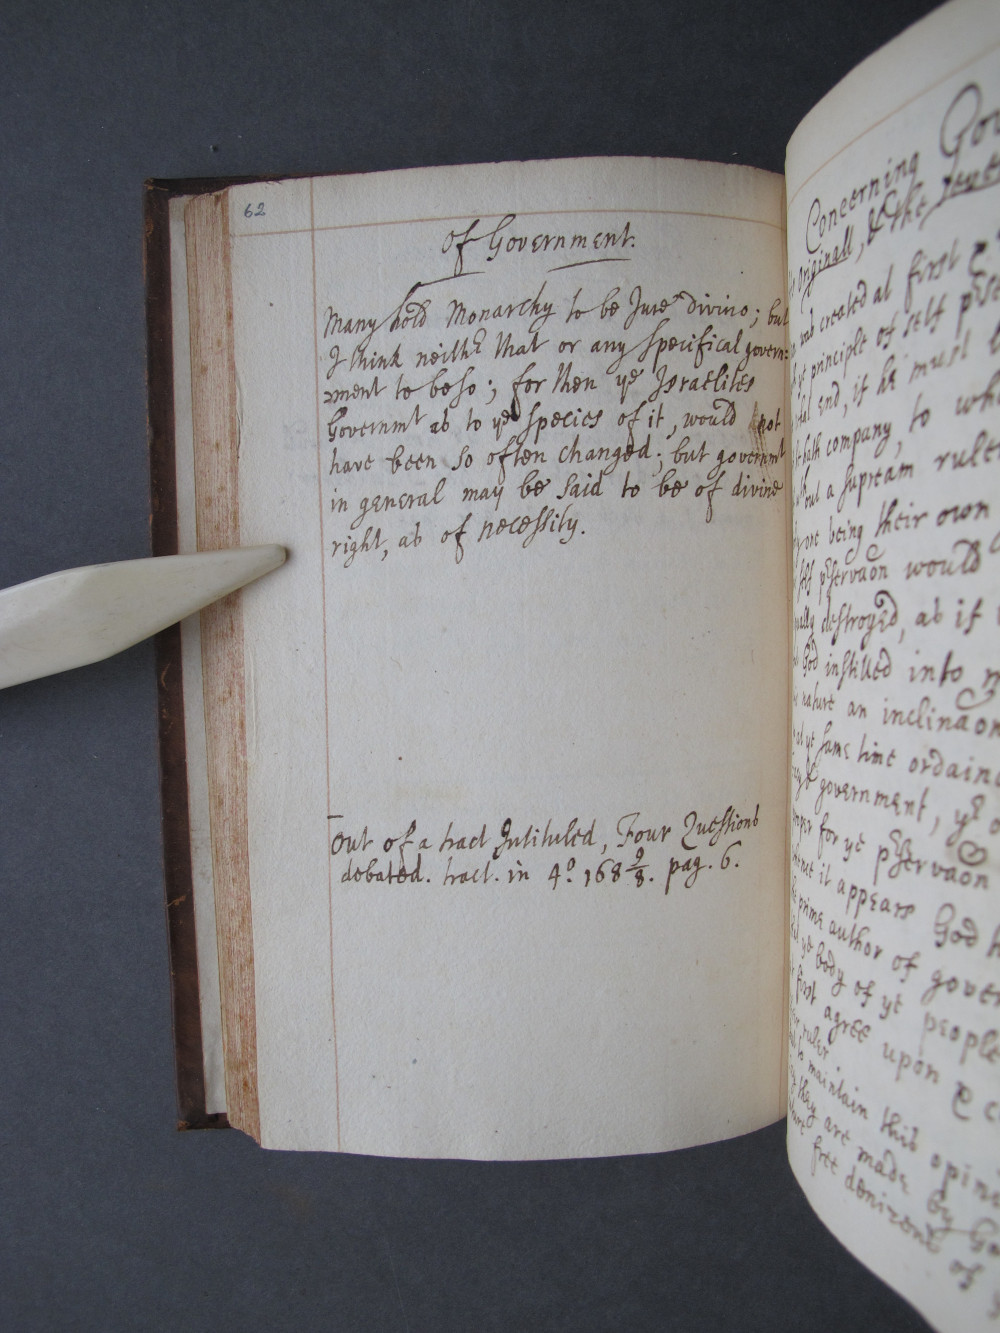 62
Of Government.
Many hold Monarchy to be Jure divino; but
I think neithr that or any specifical govern=
=ment to be so; for then ye Israelites
Governmt as to ye species of it, would not
have been so often changed; but governmt
in general may be said to be of divine
right, as of necessity.
Out of a tract Intituled, Four Questions
debated. tract. in 4o. 168 9/8. pag. 6.
Concerning Gov
Originall, & the
and created at first
ye principle of self
end, if he must
hath company, to
but a supream rule
one being their own
self prservaon would
destroyed, as if
God instilled into
nature an inclinaon
ye same time ordain
government, ye
for ye prservaon
it appears God h
prime author of gover
ye body of ye people
first agree upon
ruler
to maintain this opin
they are made by Go
free denizens of